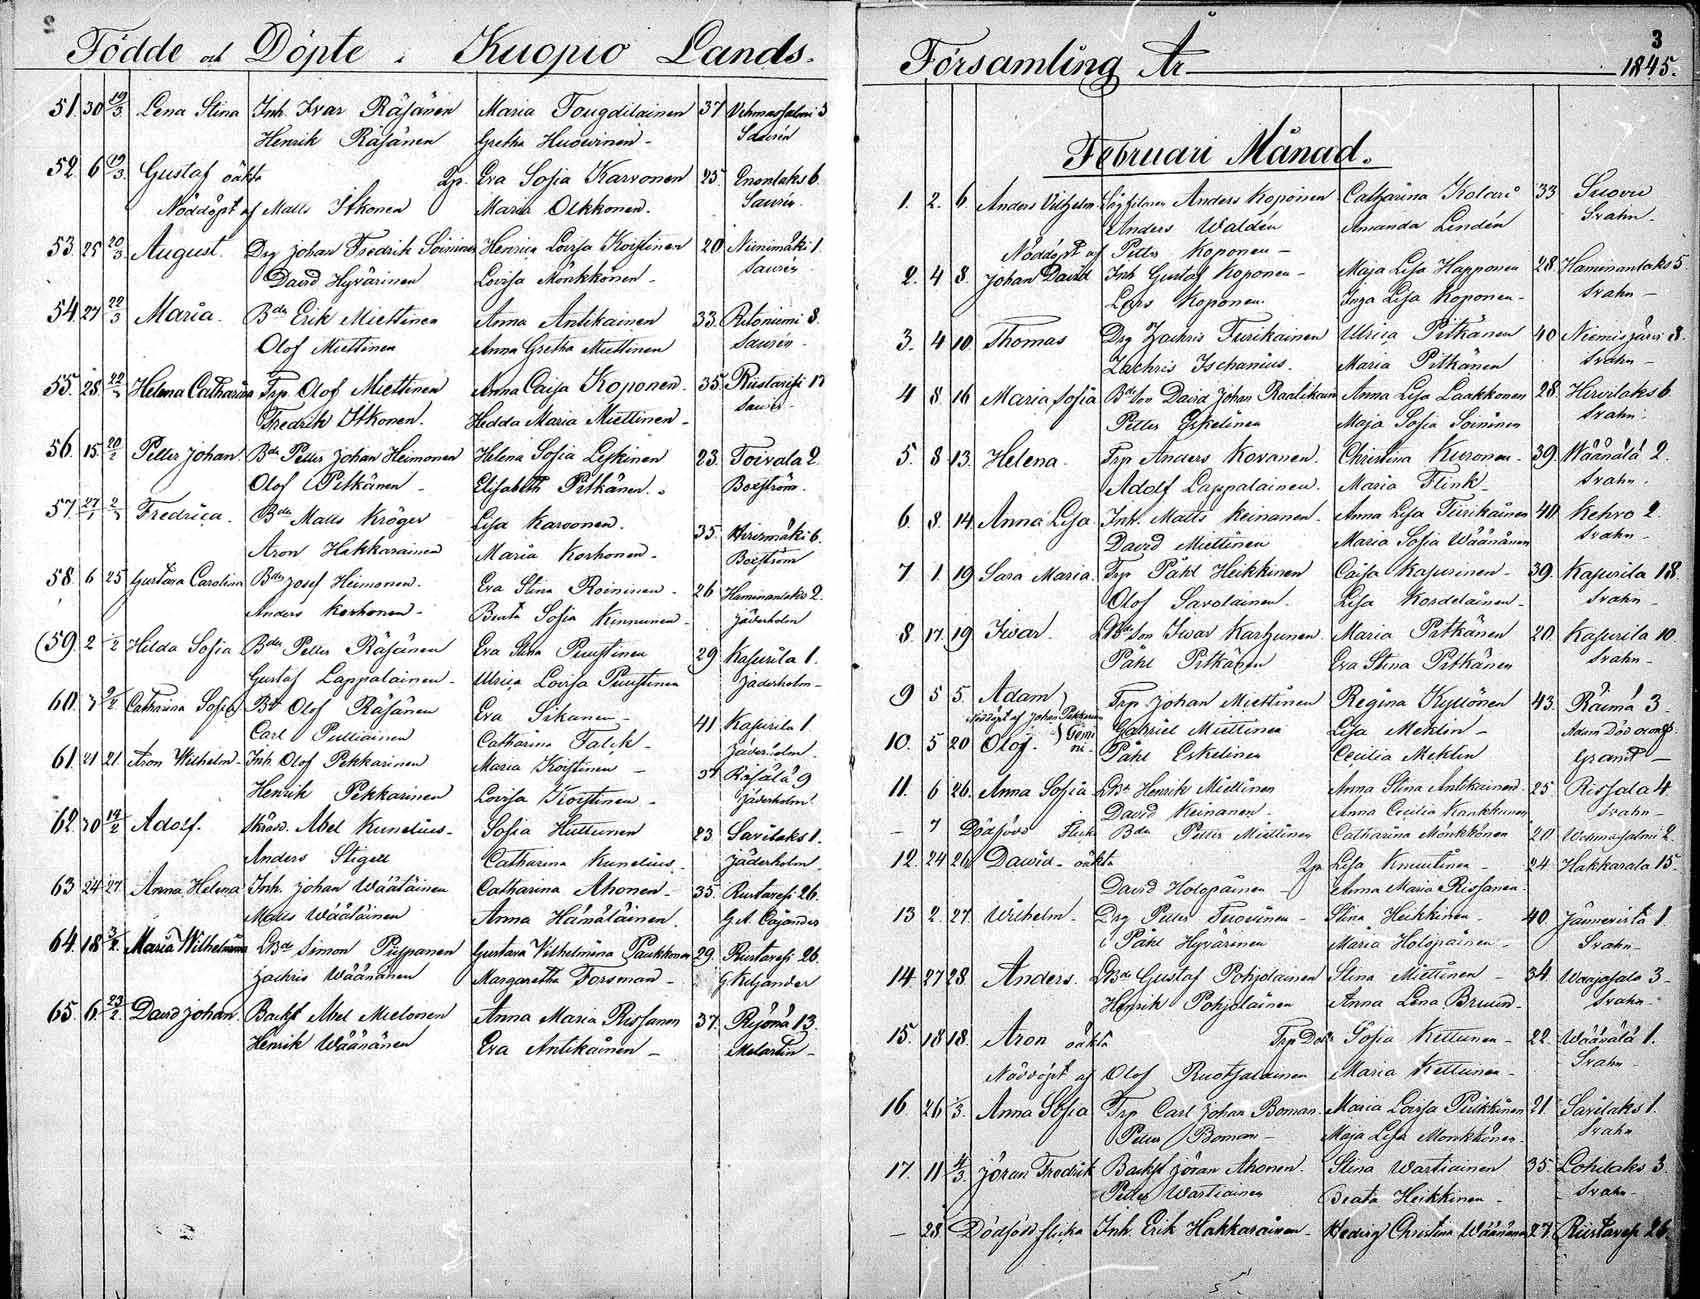 2
Födde och Döpte i Kuopio Lands-
51. 30 19/3 Lena Stina Inh. Ivar Räsänen Maria Tougdilainen 37 Vehmassalmi 5
Henrik Räsänen Gretha Huovinen - Saurén
52. 6 19/3 Gustaf oäkta Pig. Eva Sofia Karvonen 25 Enonlaks 6.
Nöddöpt af Matts Itkonen Maria Olkkonen. Saurén
53. 25 20/3 August. Drg Johan Fredrik Soininen Henrica Lovisa Koistinen 20 Niinimäki 1.
David Hyvärinen Lovisa Mönkkönen - Saurén
54 27 22/3 Maria. Bde Erik Miettinen Anna Antikainen 33. Ritoniemi 8.
Olof Miettinen Anna Gretha Miettinen Saurén
55. 28. 22/3 Helena Catharina Trp. Olof Miettinen Anna Caisa Koponen. 35 Riistavesi 17
Fredrik Itkonen. Hedda Maria Miettinen - Saurén
56. 15 20/2 Petter Johan. Bde Petter Johan Heimonen Helena Sofia Leskinen 23. Toivala 2
Olof Pitkänen - Elisabeth Pitkänen. Boxström.
57. 27/1 2/3 Fredrica. Bde Matts Kröger Lisa Karvonen. 35. Hirvimäki 6.
Aron Hakkarainen Maria Korhonen - Boxström
58. 6 25 Gustava Carolina Bde Josef Heimonen. Eva Stina Roininen - 26 Hamenanlaks 2.
Anders Korhonen - Beata Sofia Kinnunen - Jäderholm
59. 2 2/2 Hilda Sofia Bde Petter Räsänen Eva Stina Puustinen 29 Kasurila 1.
Gustaf Lappalainen - Ulrica Lovisa Puustinen Jäderholm -
60. 3 2/2 Catharina Sofia Bde Olof Räsänen Eva Sikanen - 41 Kasurila 1
Carl Pulliainen Catharina Falck - Jäderholm
61. 21 21 Aron Wilhelm - Inh Olof Pekkarinen Maria Koistinen - 37 Räsälä 9
Henrik Pekkarinen Lovisa Koistinen - Jäderholm.
62. 30 14/2 Adolf. Skräd. Abel Kunelius - Sofia Huttunen 23 Savilaks 1.
Anders Stigell Catharina Kunelius. Jäderholm
63 24 27 Anna Helena Inh. Johan Väätäinen Catharina Ahonen - 35 Riistavesi 26.
Matts Väätäinen Anna Hämäläinen. G. A. Cajander
64. 18 3/2 Maria Wilhelmina Bde Simon Pippanen Gustava Vilhelmina Paukkonen 29. Riistavesi 26.
Zachris Väänänen Margaretha Forsman - G. Kiljander
65. 6 23/2 David Johan. Backst Abel Mielonen Anna Maria Rissanen 37. Ryönä 13.
Henrik Väänänen Eva Antikainen - Molartin -
3
Församling År 1845.
Februari Månad.
1. 2. 6. Anders Vilhelm Anders Koponen Catharina Kolari 33 Suovu
Anders Waldén Amanda Lindén Svahn -
Nöddöpt af Petter Koponen -
2. 4 8. Johan David Inh Gustaf Koponen - Maja Lisa Happonen 28. Hamenanlaks 5
Lars Koponen. Inga Lisa Koponen - Svahn -
3. 4 10 Thomas Drg Zachris Tiirikainen Ulrica Pitkänen 40 Niemisjärvi 8.
Zachris Ischanius. Maria Pitkänen Svahn -
4 8. 16 Maria Sofia Bde son David Johan Raatikain Anna Lisa Laakkonen 28. Hirvilaks 6.
Petter Eskelinen Maja Sofia Soininen Svahn.
5. 8 13. Helena. Trp Anders Kovanen. Christina Kuronen - 39. Wäänälä 2.
Adolf Lappalainen. Maria Flink Svahn.
6. 8. 14. Anna Lisa Inh. Matts Keinanen. Anna Lisa Tiirikainen 40. Kehvo 2
David Miettinen Maria Sofia Väänänen Svahn -
7 1. 19 Sara Maria. Trp Påhl Heikkinen Caisa Kasurinen - 39. Kasurila 18.
Olof Savolainen. Lisa Kordelainen - Svahn -
8. 17. 19. Iwar. Bde son Iwar Karhunen Maria Pitkänen 20. Kasurila 10.
Påhl Pitkänen Eva Stina Pitkänen Svahn -
9 5 5. Adam Trp Johan Miettinen Regina Kyllönen 43. Räimä 3 -
Nöddöpt af Johan Pekkarinen Gabriel Miettinen Lisa Meklin - Adam Död
10. 5 20 Olof. Gemini Påhl Eskelinen Cecilia Meklin Grand -
11. 6 26. Anna Sofia Bde Henrik Miettinen Anna Stina Antikainen - 25 Rissala 4
David Keinanen. Anna Cecilia Kankkunen Svahn -
- 7 Dödfödd Flicka Bde Petter Miettinen Catharina Mönkkönen 20 Wehmassalmi 2.
12. 24 26 David - oäkta Pig. Lisa Knuutinen - 24 Hakkarala 15.
David Holopainen - Anna Maria Rissanen.
13 2. 27. Wilhelm - Drg Petter Tuovinen - Stina Heikkinen - 40 Jännevirta 1.
Påhl Hyvärinen Maria Holopainen - Svahn -
14. 27 28. Anders. Bde Gustaf Pohjolainen Stina Miettinen - 34 Waajasalo 3
Henrik Pohjolainen Anna Lena Bruun. Svahn -
15. 18 18. Aron oäkta Trp Dotr Sofia Kettunen - 22. Wäänälä 1.
Nöddöpt af Olof Ruotsalainen Maria Kettunen - Svahn -
16. 26 1/3. Anna Sofia Trp Carl Johan Boman Maria Lovisa Pulkkinen 21 Savilaks 1.
Petter Boman - Maja Lisa Mönkkönen. Svahn
17. 11 4/3. Jöran Fredrik Backst Jöran Ahonen. Stina Wartiainen 35. Lohilaks 3.
Petter Wartiainen Beata Heikkinen - Svahn -
- 28. Dödfödd flicka Inh. Erik Hakkarainen - Hedvig Christina Väänänen 27. Riistavesi 26.